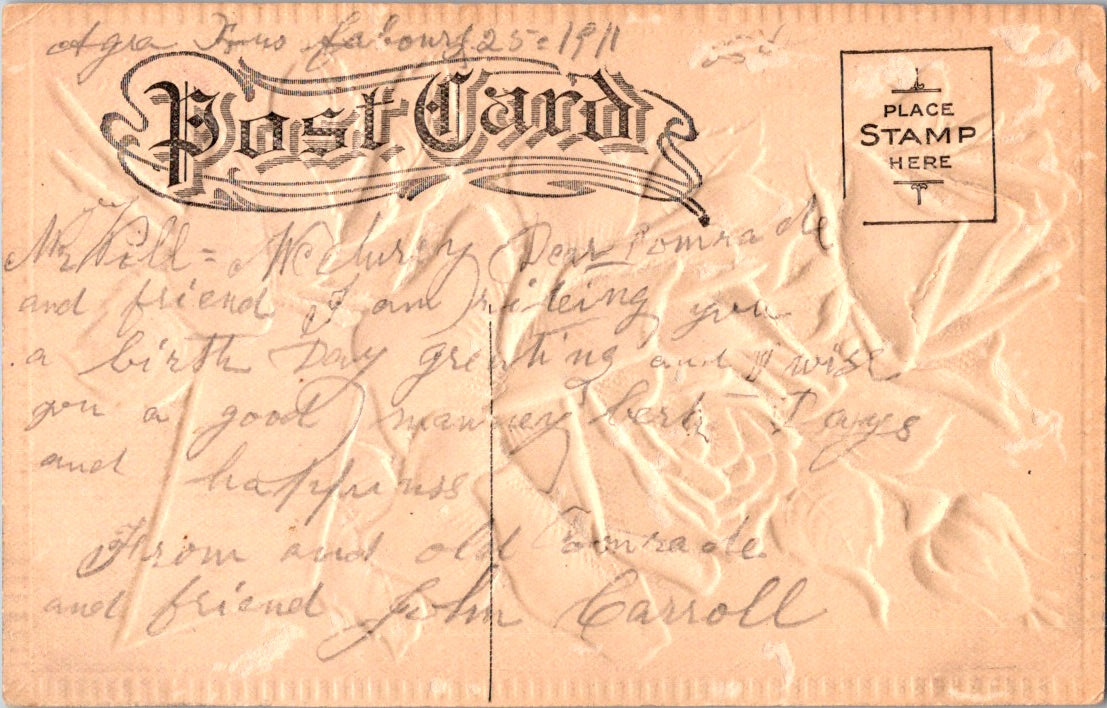 Agra Kans 25 = 1911
Post Card
PLACE
STAMP
HERE
Mr Will = McClurry Dear Comrade
and friend I am riteing you
a birth Day greeting and I wish
you a good manney berth Days
and happiness
From and old Comrade
and friend John Carroll